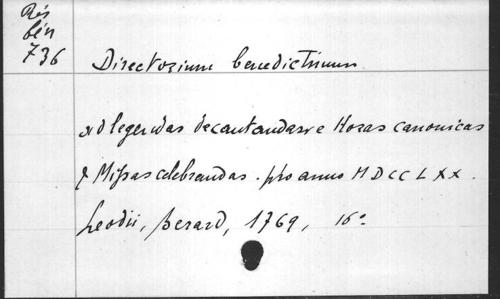 Rés
bén
736
Directorium benedictinum
ad legendas decantandasve Horas canonicas
& Missas celebrandas. pro anno MDCCLXX.
Leodii, Berard, 1769, 16°